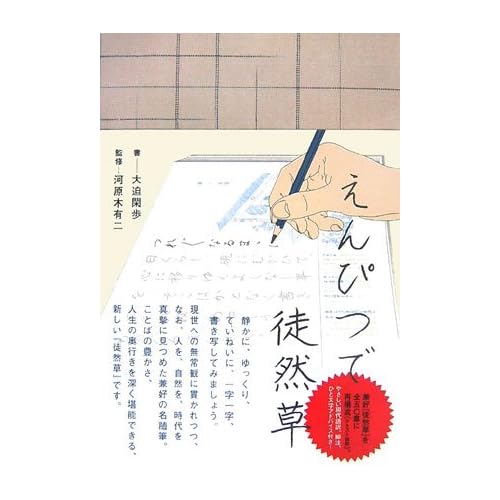 えんぴつで
徒然草
書―大迫閑歩
監修―河原木有二
つれ〴〵なるまゝ
静かに、ゆっくり、
ていねいに、一字一字、
書き写してみましょう。
現世への無常観に貫かれつつ、
なお、人を、自然を、時代を
真摯に見つめた兼好の名随筆。
ことばの豊かさ、
人生の奥行きを深く堪能できる、
新しい『徒然草』です。
兼好『徒然草』を
全五〇章に
再構成
やさしい現代語訳、脚注、